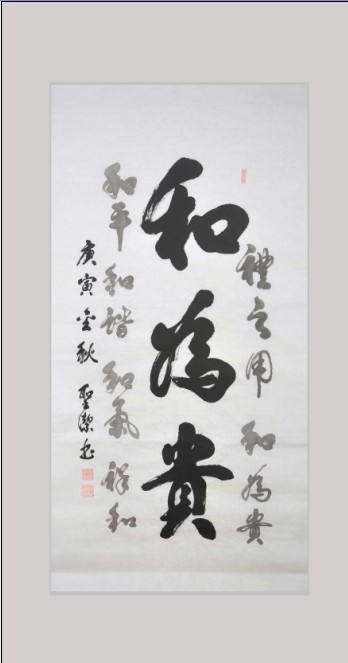 禮之用 和為貴
和為貴
和平 和諧 和氣 祥和
庚寅金秋 聖潔書